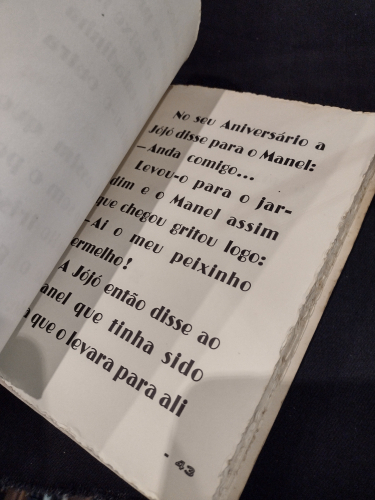 No seu Aniversário a
Jójó disse para o Manel:
— Anda comigo...
Levou-o para o jar-
dim e o Manel assim
que chegou gritou logo:
— Ai o meu peixinho
ermelho!
A Jójó então disse ao
anel que tinha sido
a que o levara para ali
- 43